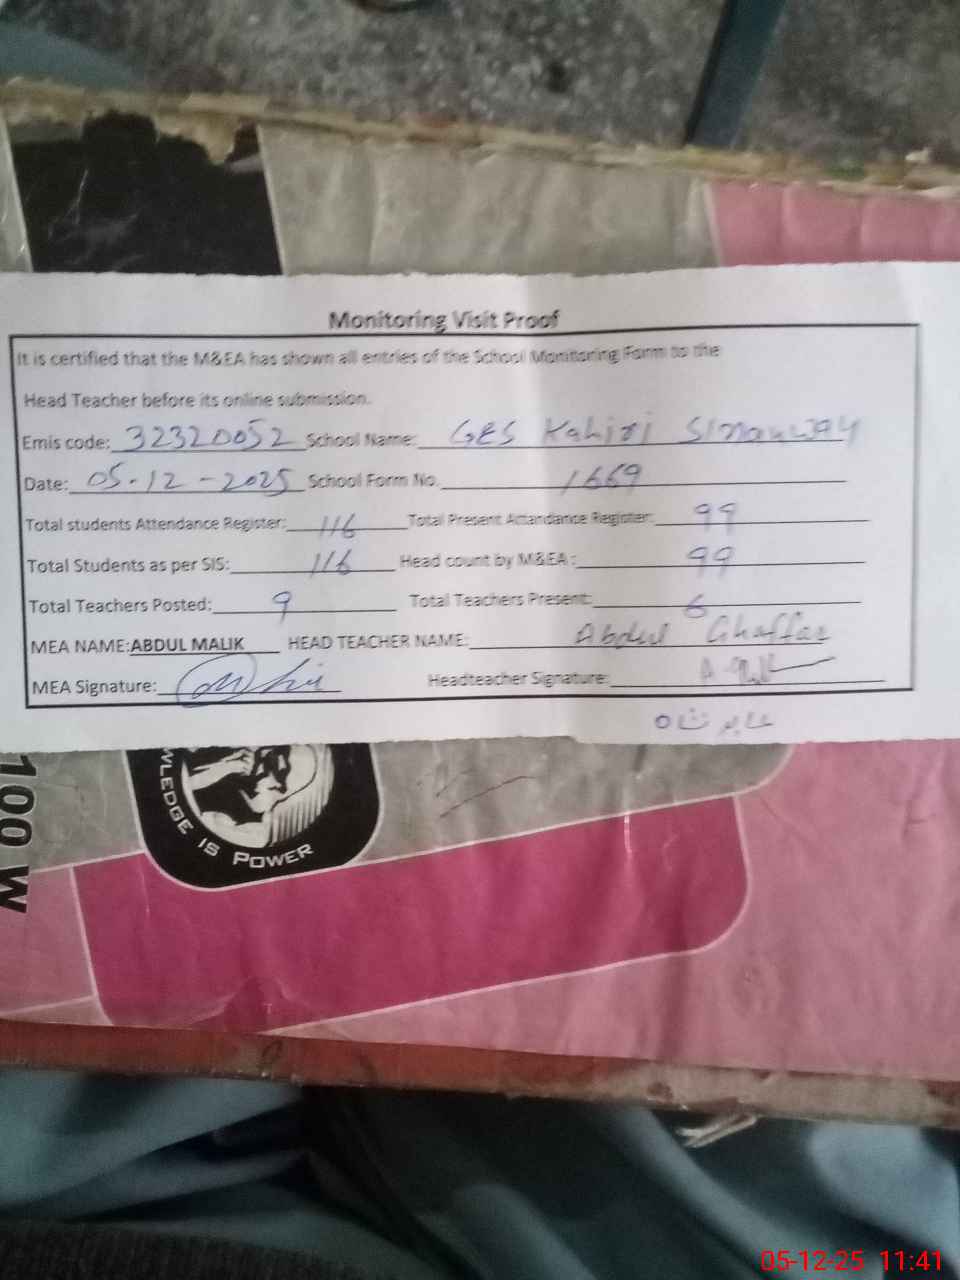 Monitoring Visit Proof
It is certified that the M&EA has shown all entries of the School Monitoring Form to the
Head Teacher before its online submission.
Emis code: 32320052 School Name: GES Kahiri
Date: 05-12-2025 School Form No. 1669
Total students Attendance Register: 116 Total Present Attandance Register: 99
Total Students as per SIS: 116 Head count by M&EA: 99
Total Teachers Posted: 9 Total Teachers Present: 6
MEA NAME: ABDUL MALIK HEAD TEACHER NAME: Abdul Ghaffar
MEA Signature: Headteacher Signature:
WLEDGE IS POWER
100 W
05-12-25 11:41